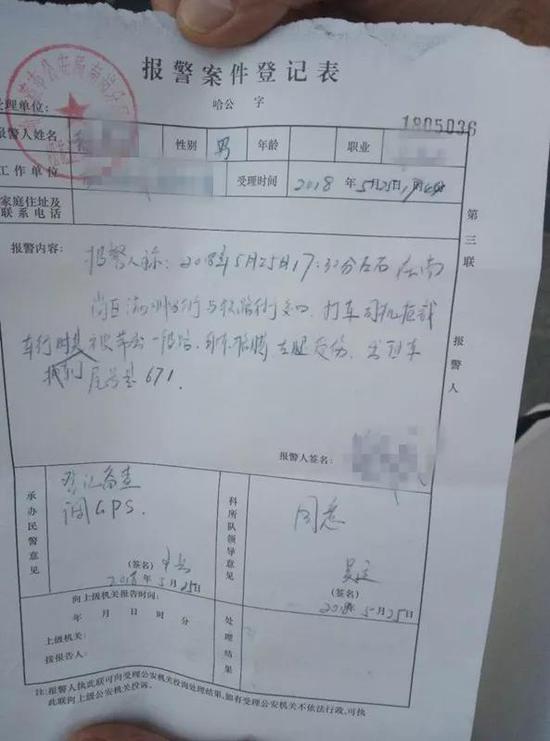 报警案件登记表
受理单位:
哈公 字
1805036
报警人姓名 性别 男 年龄 职业
工作单位 受理时间 2018 年 5 月 25 日 17
家庭住址及
联系电话
第三联 报警人
报警内容:
报警人称:2018年5月25日17:32分左右 在南
岗区 街与 街交口,打车司机拒载
车行时 被带出一段路, 胳膊 左腿受伤,出租车
尾号是671.
报警人签名:
承办民警意见
登记备查
调GPS.
(签名)
2018 年 5 月 25 日
科所队领导意见
同意
(签名)
2018 年 5 月 25 日
向上级机关报告时间:
年 月 日 时 分
上级机关:
接报告人:
处理结果
注:报警人执此联可向受理公安机关投询处理结果,如有受理公安机关不依法行政,可执
此联向上级公安机关投诉。